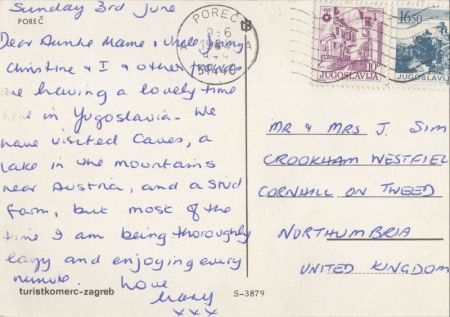 Sunday 3rd June
POREČ
Dear Auntie Mame & Uncle Jimmy
Christine & I & other
are having a lovely time
here in Yugoslavia. We
have visited Caves, a
Lake in the mountains
near Austria, and a Stud
farm, but most of the
time I am being thoroughly
lazy and enjoying every
minute. Love
Mary
xxx
turistkomerc-zagreb
S-3879
POREČ
51440
JUGOSLAVIJA
10
16.50
JUGOSLAVIJ
MR & MRS J. SIM
CROOKHAM WESTFIEL
CORNHILL ON TWEED
NORTHUMBRIA
UNITED KINGDOM